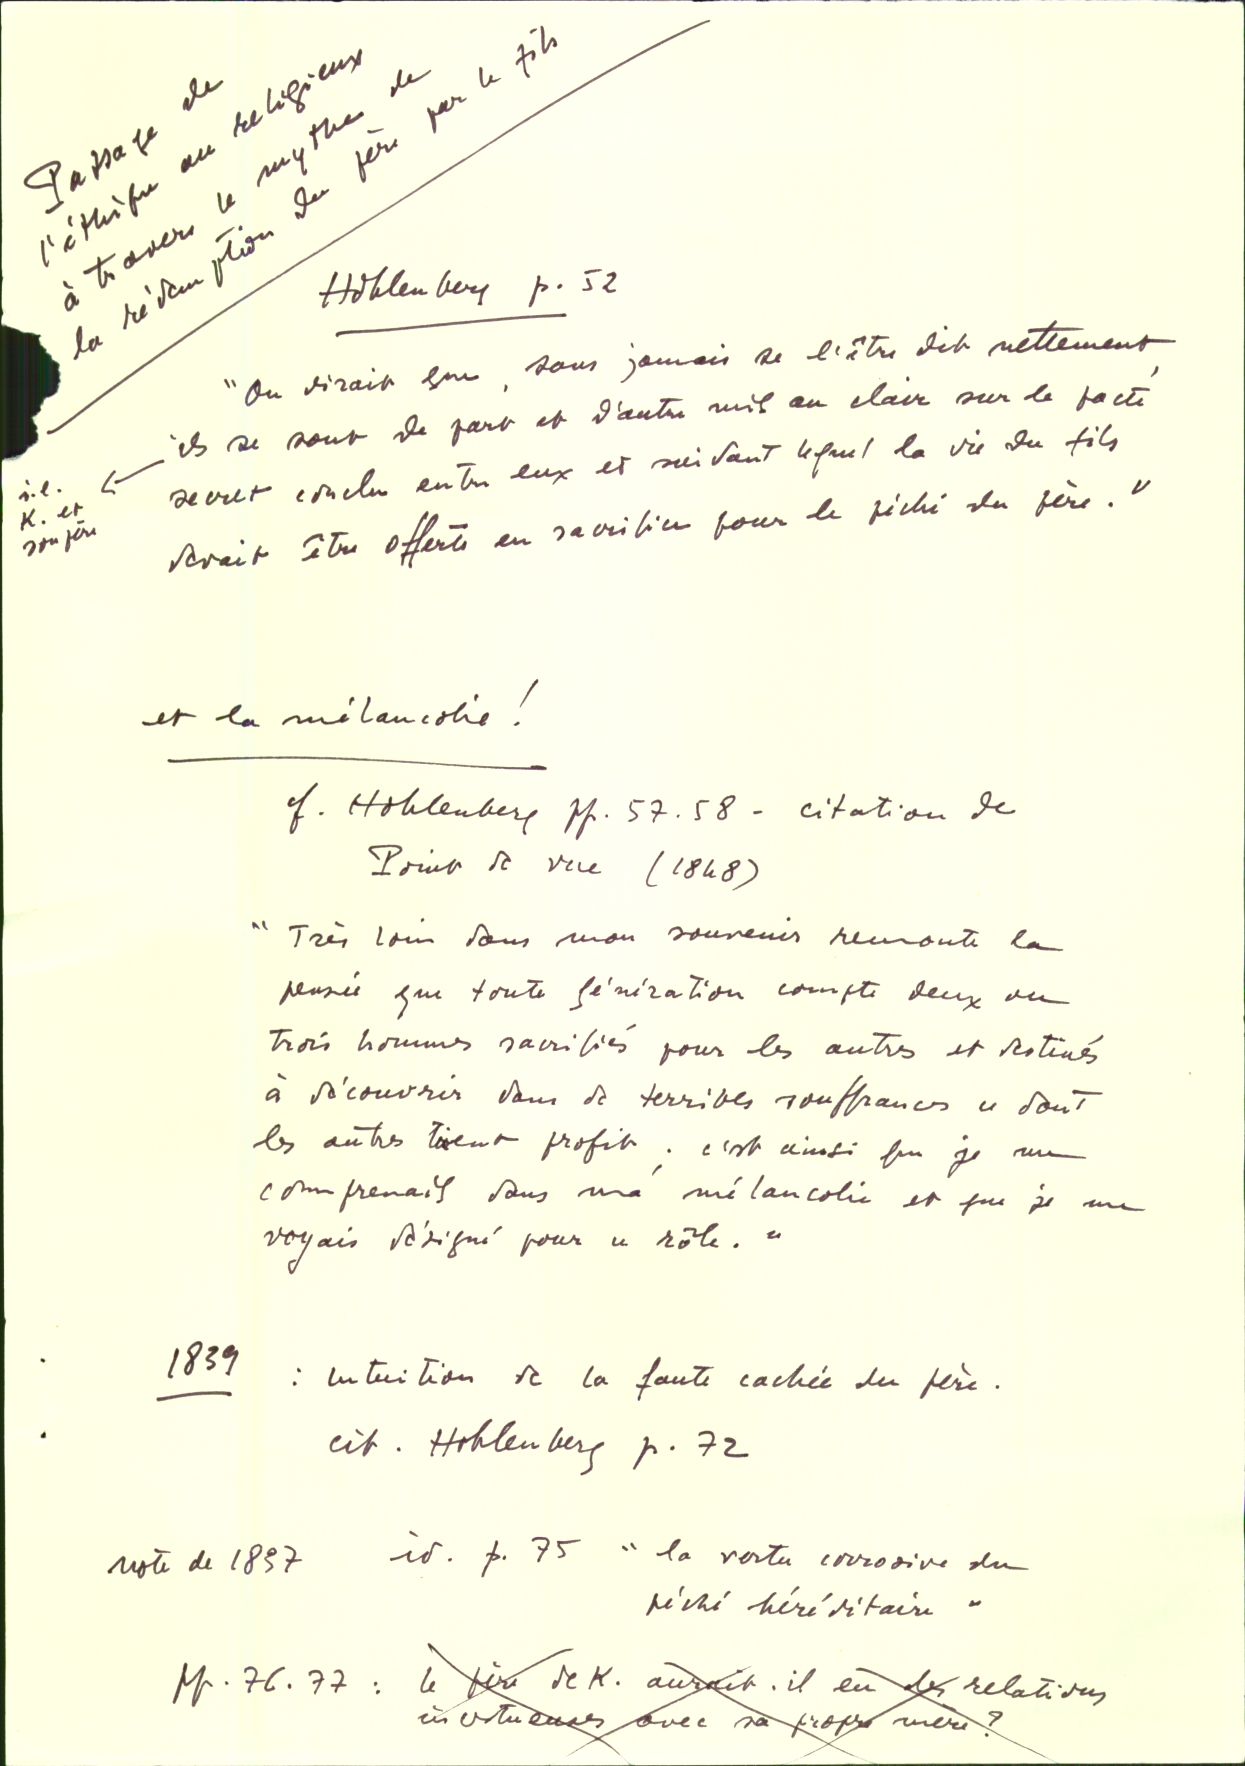 Passage de
l'éthique au religieux
à travers le mythe de
la rédemption du père par le fils
Hohlenberg p. 52
"On dirait que, sans jamais se l'être dit nettement,
ils se sont de part et d'autre mis au clair sur le pacte
secret conclu entre eux et suivant lequel la vie du fils
devait être offerte en sacrifice pour le péché du père."
i.e.
K. et
son père
et la mélancolie !
cf. Hohlenberg pp. 57.58 - citation de
Point de vue (1848)
"Très loin dans mon souvenir remonte la
pensée que toute génération compte deux ou
trois hommes sacrifiés pour les autres et destinés
à découvrir dans de terribles souffrances ce dont
les autres tirent profit ; c'est ainsi que je me
comprenais dans ma mélancolie et que je me
voyais désigné pour ce rôle."
1839 : intuition de la faute cachée du père.
cit. Hohlenberg p. 72
note de 1837 id. p. 75 "la vertu corrosive du
péché héréditaire"
pp. 76.77 : le père de K. aurait-il eu des relations
incestueuses avec sa propre mère ?